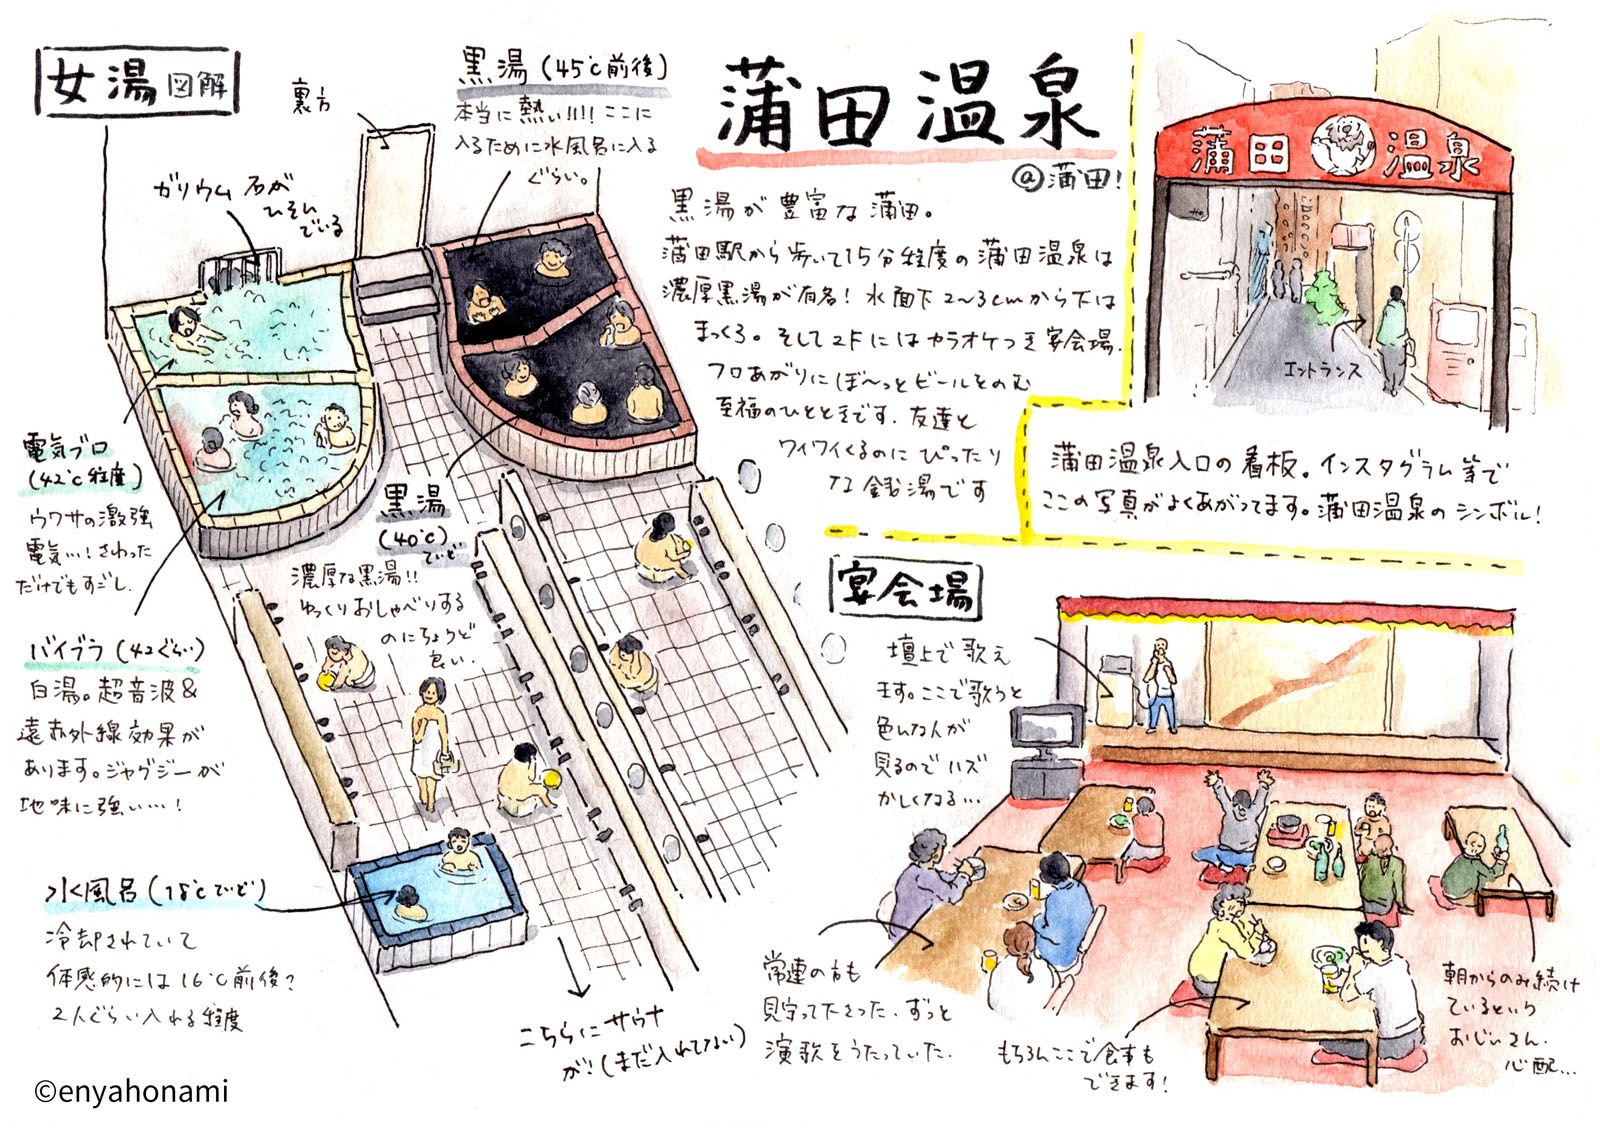 女湯図解
裏方
黒湯(45℃前後)
本当に熱い!!!! ここに
入るために水風呂に入る
ぐらい。
ガリウム石が
ひそん
でいる
蒲田温泉
@蒲田!
黒湯が豊富な蒲田。
蒲田駅から歩いて15分程度の蒲田温泉は
濃厚黒湯が有名! 水面下2〜3cmから下は
まっくろ。そして2Fにはカラオケつき宴会場.
フロあがりにぼ〜っとビールをのむ
至福のひとときです. 友達と
ワイワイくるのにぴったり
な銭湯です
蒲田温泉
エントランス
蒲田温泉入口の看板。インスタグラム等で
ここの写真がよくあがってます。蒲田温泉のシンボル!
電気ブロ
(42℃程度)
ウワサの激強
電気…! さわった
だけでもすごし.
バイブラ(42ぐらい)
白湯。超音波&
遠赤外線効果が
あります。ジャグジーが
地味に強い…!
黒湯
(40℃)
ていど
濃厚な黒湯!!
ゆっくりおしゃべりする
のにちょうど
良い.
水風呂(18℃ていど)
冷却されていて
体感的には16℃前後?
2人ぐらい入れる程度
こちらにサウナ
が!(まだ入れてない)
宴会場
壇上で歌え
ます。ここで歌うと
色んな人が
見るのでハズ
かしくなる…
常連の方も
見守って下さった. ずっと
演歌をうたっていた.
もちろんここで食事も
できます!
朝からのみ続け
ているという
おじいさん.
心配…
©enyahonami